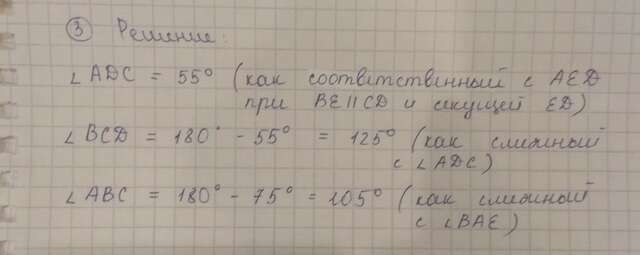 ③ Решение:
∠ADC = 55° (как соответственный с AED
при BE||CD и секущей ED)
∠BCD = 180° - 55° = 125° (как смежный
с ∠ADC)
∠ABC = 180° - 75° = 105° (как смежный
с ∠BAE)